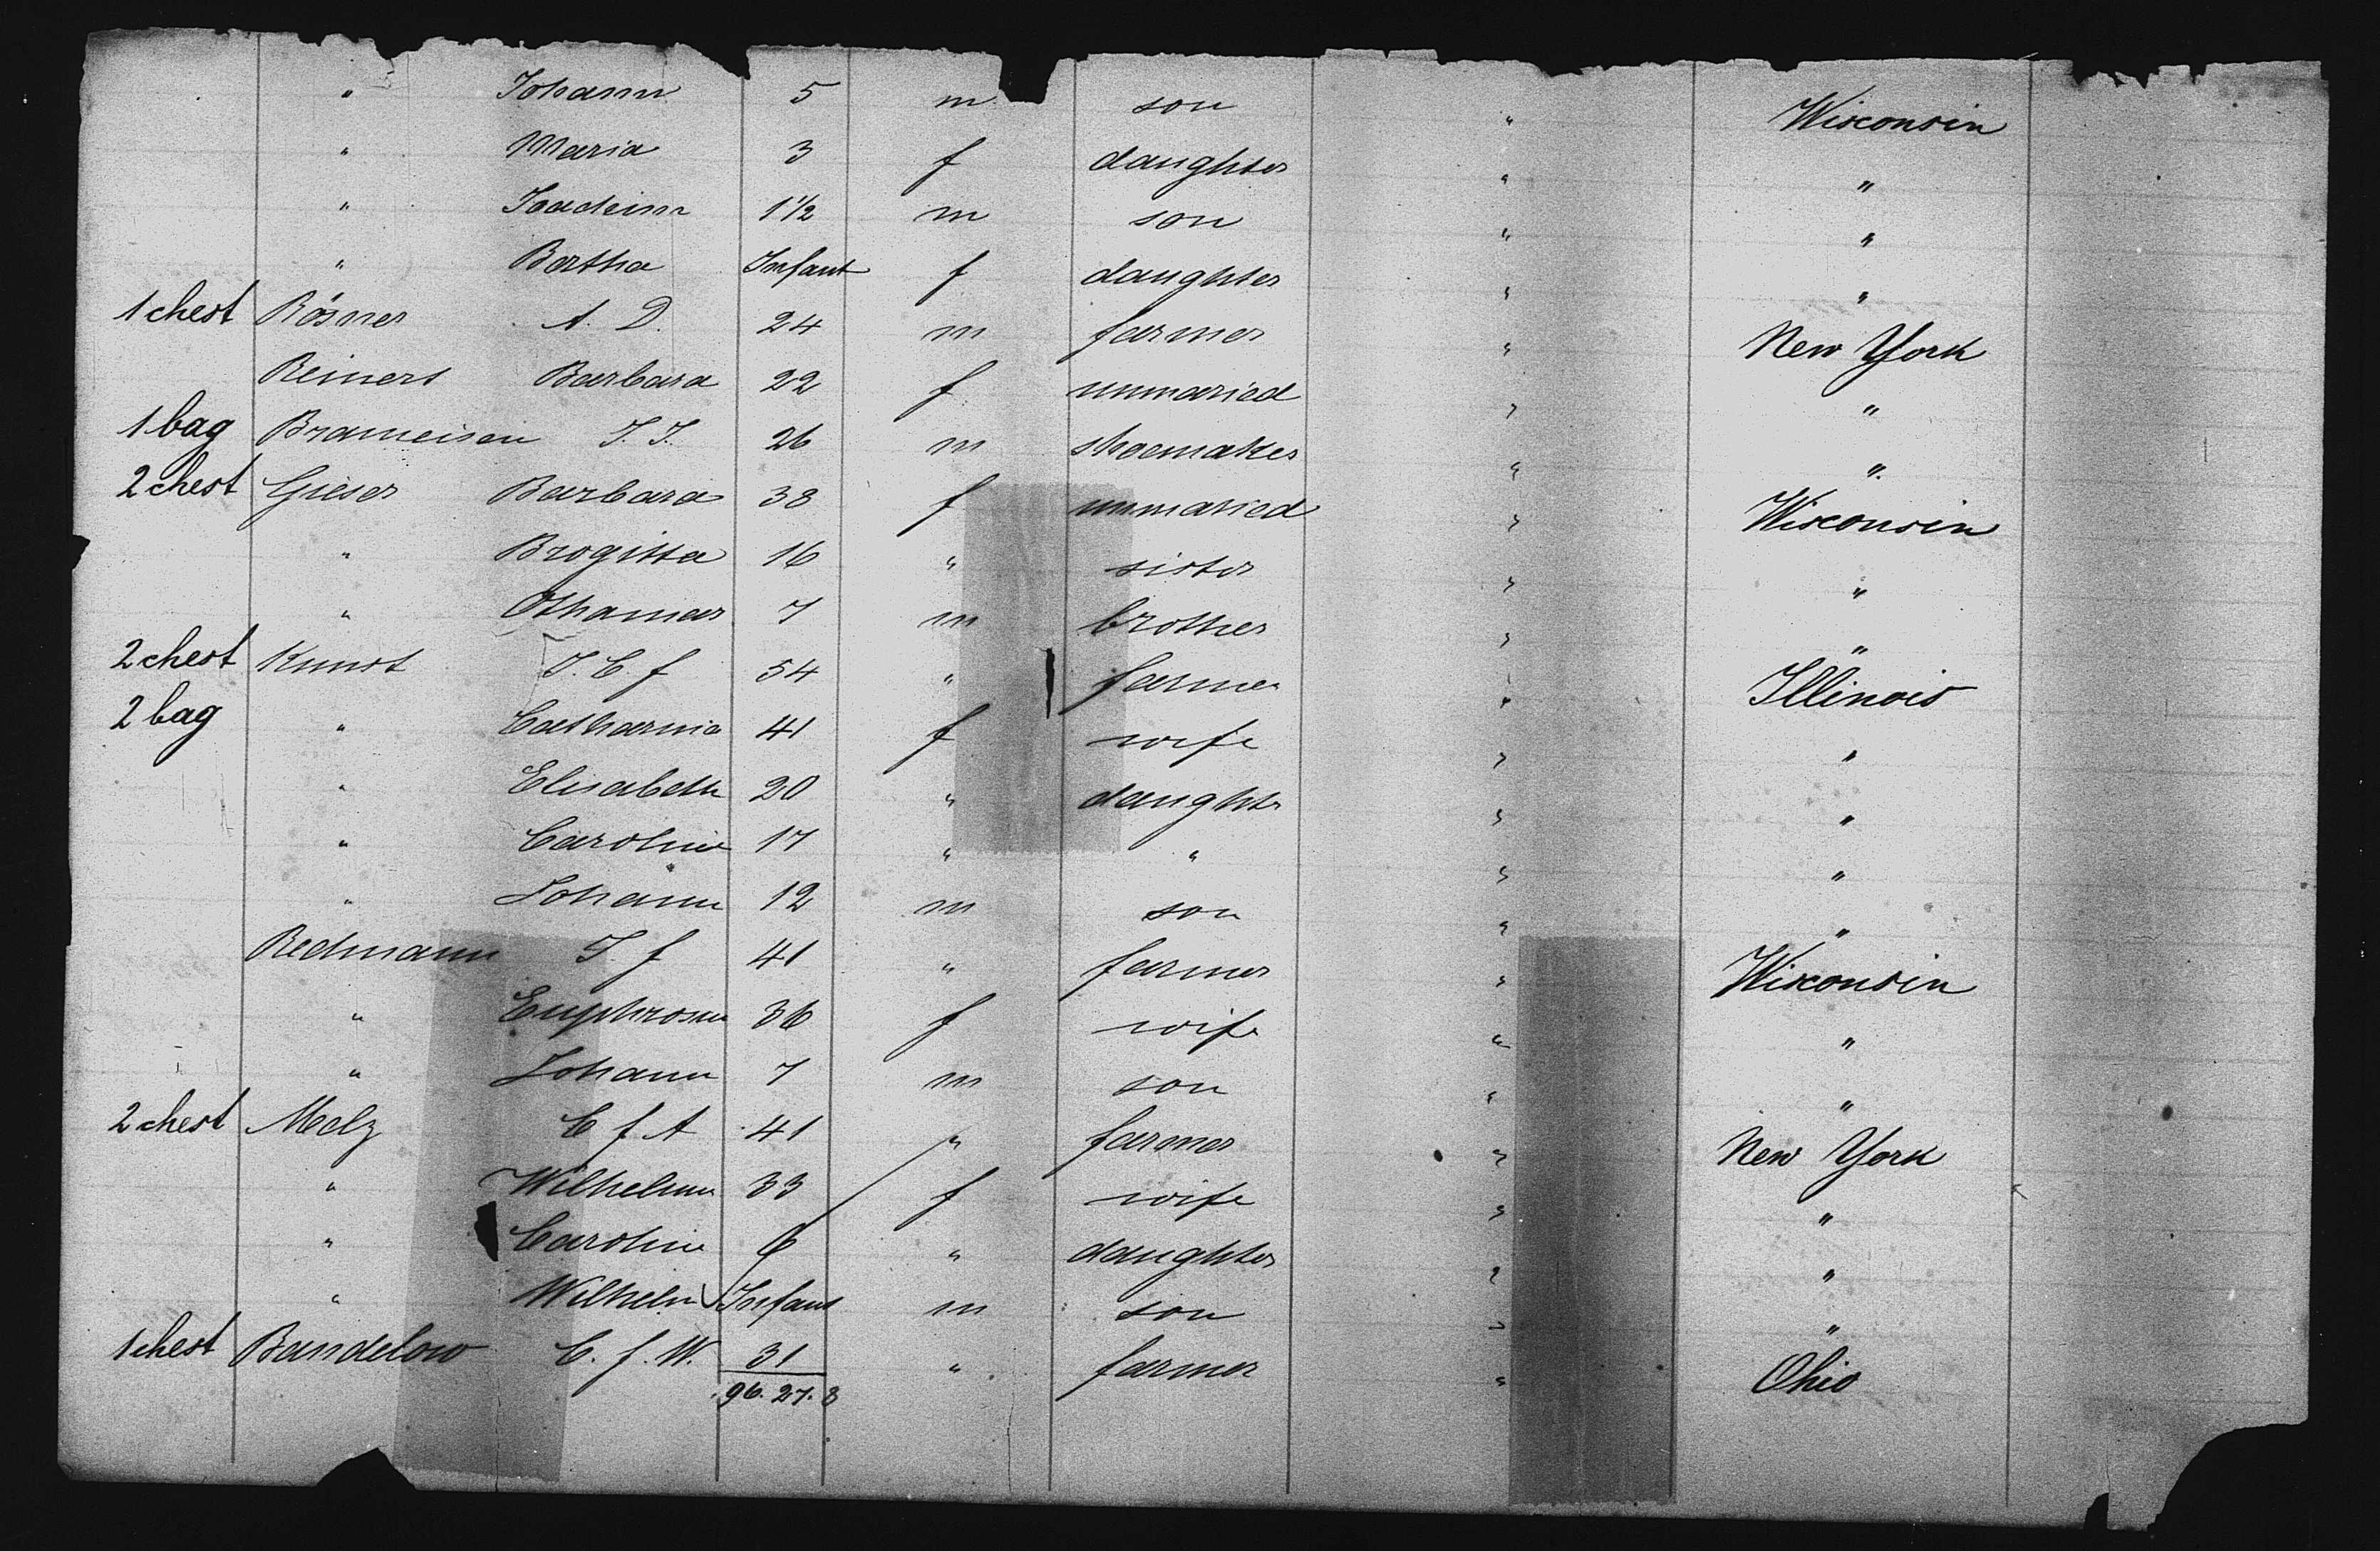 " Johann 5 m son " Wisconsin
" Maria 3 f daughter " "
" Joachim 1 1/2 m son " "
" Bertha Infant f daughter " "
1 chest Rösner A. D. 24 m farmer " New York
Reiners Barbara 22 f unmaried " "
1 bag Brameisen J. J. 26 m shoemaker " "
2 chest Gieser Barbara 38 f unmaried " Wisconsin
" Brogitta 16 " sister " "
" Othamar 7 m brother " "
2 chest Kunst J. C. f 54 " farmer " Illinois
2 bag " Catharina 41 f wife " "
" Elisabeth 20 " daughter " "
" Caroline 17 " " " "
" Johann 12 m son " "
Redmann J. f 41 " farmer " Wisconsin
" Euphrosine 36 f wife " "
" Johann 7 m son " "
2 chest Melz C f A 41 " farmer " New York
" Wilhelmine 33 f wife " "
" Caroline 6 " daughter " "
" Wilhelm Infant m son " "
1 chest Bandelow C. f. W. 31 " farmer " Ohio
96. 27. 8